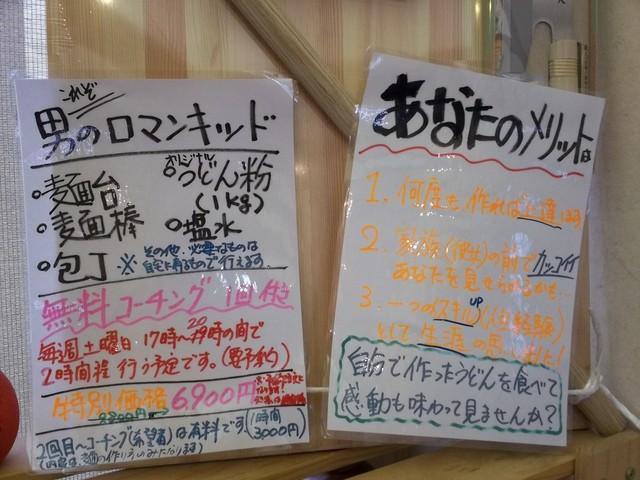 これぞ
男のロマンキッド
○麺台
○オリジナルうどん粉
(1kg)
○麺棒 ○塩水
○包丁 ※その他、必要なものは
自宅に有るもので行えます。
無料コーチング1回付き
毎週土曜日 17時〜20時の間で
2時間程行う予定です。(要予約)
特別価格 6,900円
9,800円→
2回目〜コーチング(希望者)は有料です(1時間
3000円)
(内容は、麺の作り方のみになります)
あなたのメリットは
1. 何度も作れば上達する
2. 家族(彼女)の前でカッコイイ
あなたを見せられるかも…
3. 一つのスキルup(人生経験)
として生涯の思い出に!
自分で作ったうどんを食べて
感動も味わって見ませんか?